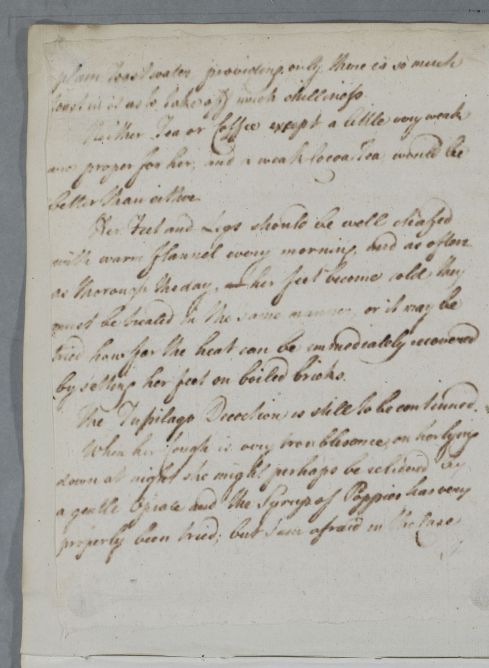 plain toast water providing only there is so much
toast in it as to take off much chilliness
Neither Tea or Coffee except a little very weak
are proper for her, and a weak Cocoa Tea would be
better than either.
Her Feet and Legs should be well chafed
with warm flannel every morning, and as often
as thorough the day, as her feet become cold they
must be treated in the same manner, or it may be
tried how far the heat can be immediately recovered
by setting her feet on boiled bricks.
The Tusilago Decoction is still to be continued.
When her Cough is very troublesome, on her lying
down at night she might perhaps be relieved by
a gentle Opiate and the Syrup of Poppies has very
properly been tried; but I am afraid in the Case